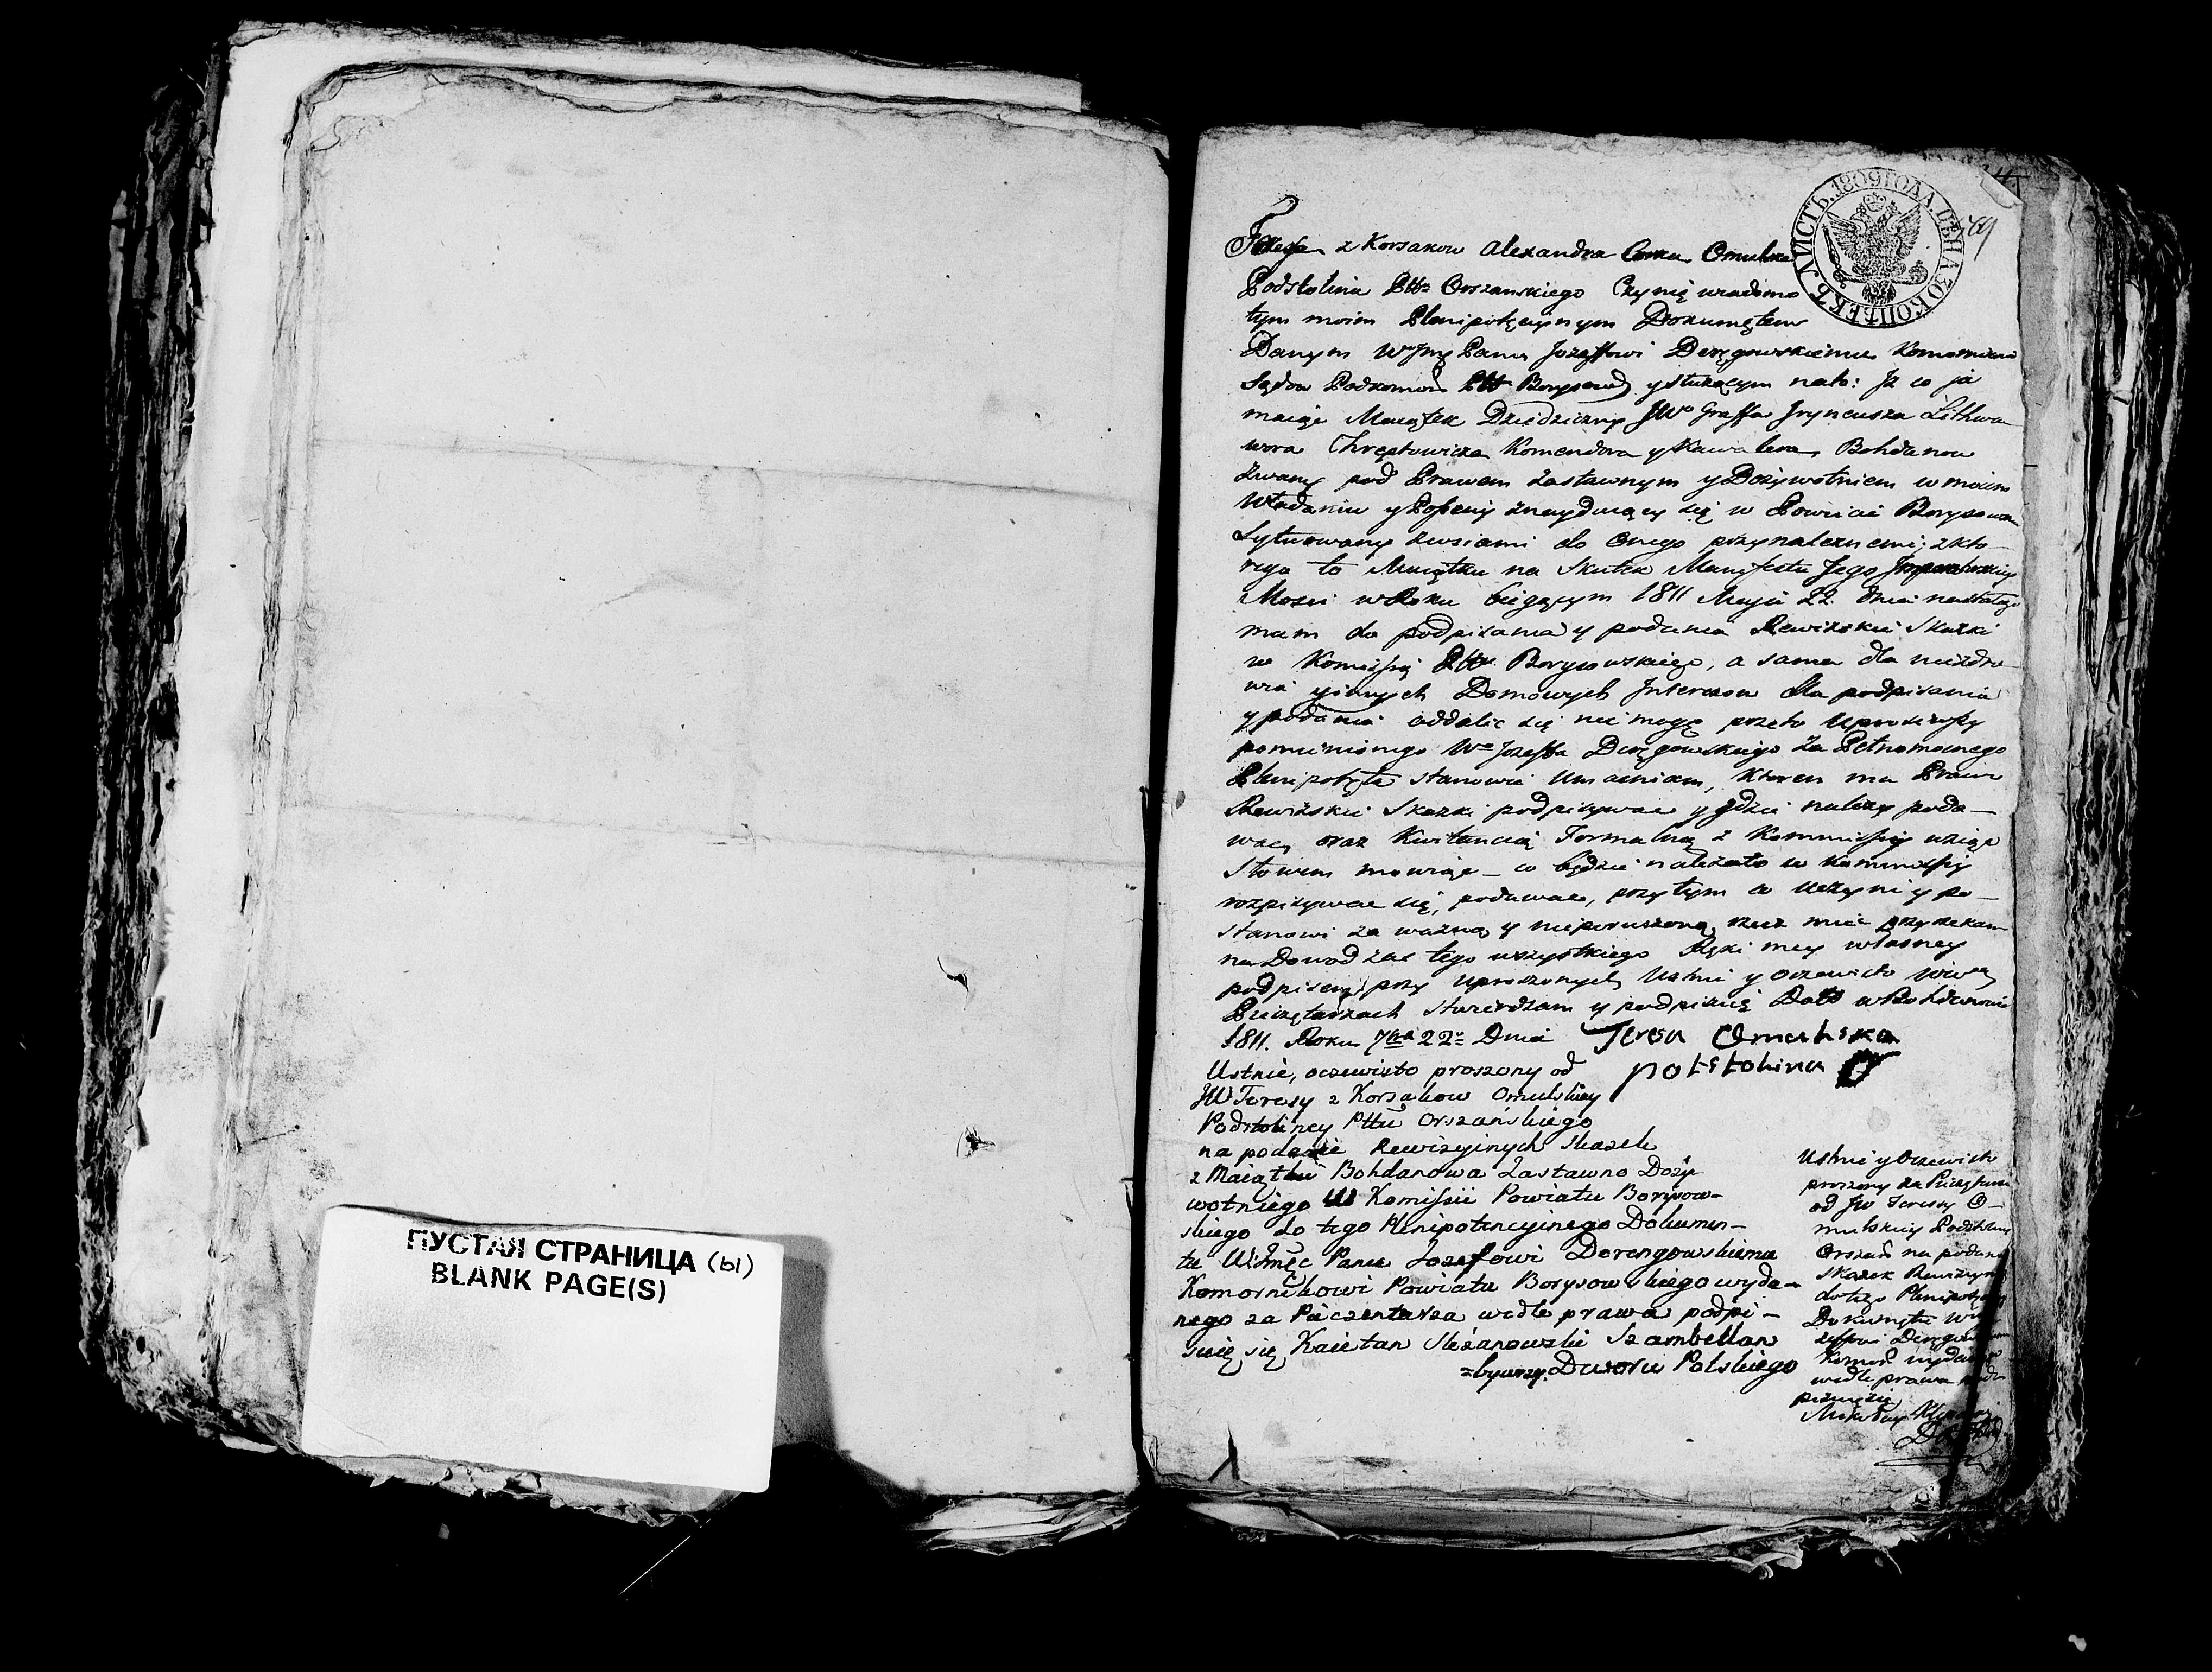 ПУСТАЯ СТРАНИЦА (ы)
BLANK PAGE(S)
ЛИСТЪ. 1809 ГОДА. ЦѢНА 30 КОПѢЕКЪ
Teressa z Korsakow Alexandra Corka Omulska
Podstolina Pttu Orszanskiego Czynię wiadomo
tym moim Plenipotęcyinym Dokumętem
Danym WJmć Panu Jozeffowi Deręgowskiemu
Sądow Podkomor Pttu Borysow y służącym na to: Jż co ja
maiąc Maiątek Dziedziczny JWo Graffa Jryneusza Lithwa
wora Chreptowicza Komendora y Kawalera Bohdanow
zwany pod Prawem Zastawnym y Dożywotniem w moim
Władaniu y Possesyi znayduiący się w Powiecie Borysow
Sytuowany zwsiami do Onego przynależnemi; z kto
rego to Maiątku na Skutek Manifestu Jego Jmperatorskiey
Mosci w Roku bieżącym 1811 Maja 22. Dnia nastałego
mam do podpisania y podania Rewizskie Skazki
w Komissyi Pttu Borysowskiego, a sama dla niezdro
wia y innych Domowych Jnteresow dla podpisania
y podania oddalic się nie mogę przeto Uprosiwszy
pomienionego Wo Jozeffa Deręgowskiego za Pełnomocnego
Plenipotęta stanowie Umacniam, ktoren ma Prawo
Rewizskie Skazki podpisywac y gdzie należy poda—
wac, oraz Kwitancią Formalną z Kommissyi wziąc
Słowem mowiąc — co będzie należało w Kommissyi
rozpisywac się, podawac, przytym co uczyni y po—
stanowi za ważną y nieporuszoną rzecz miec przyrzekam
na Dowod zas tego wszystkiego Ręki mey własney
podpisem przy Uproszonych Ustnie y oczewisto
Pieczętarzach stwierdzam y podpisuię Datt w Bohdanowie
1811. Roku 7bra 22 Dnia Teresa Omulska
potstolina
Ustnie, oczewisto proszony od
JW Teresy z Korsakow Omulskiey
Podstoliney Pttu Orszańskiego
na podanie Rewizyinych skazek
z Maiątku Bohdanowa Zastawno Doży
wotniego W Komissii Powiatu Borysow—
skiego do tego Plenipotencyinego Dokumen—
tu WJmęc Panu Jozefowi Derengowskiemu
Komornikowi Powiatu Borysowskiego wyda—
nego za Pieczentarza wedle prawa podpi—
suię się Kaietan Szambellan
zbywszy Dworu Polskiego
Ustnie y Oczewisto
proszony za Pieczętarza
od JW Teressy O—
mulskiey Podstoliney
Orszań na podanie
skazek Rewizyin
do tego Plenipotęcyin
Dokumętu
Komor wydanego
wedle prawa pod
pisuię się
Mikołay